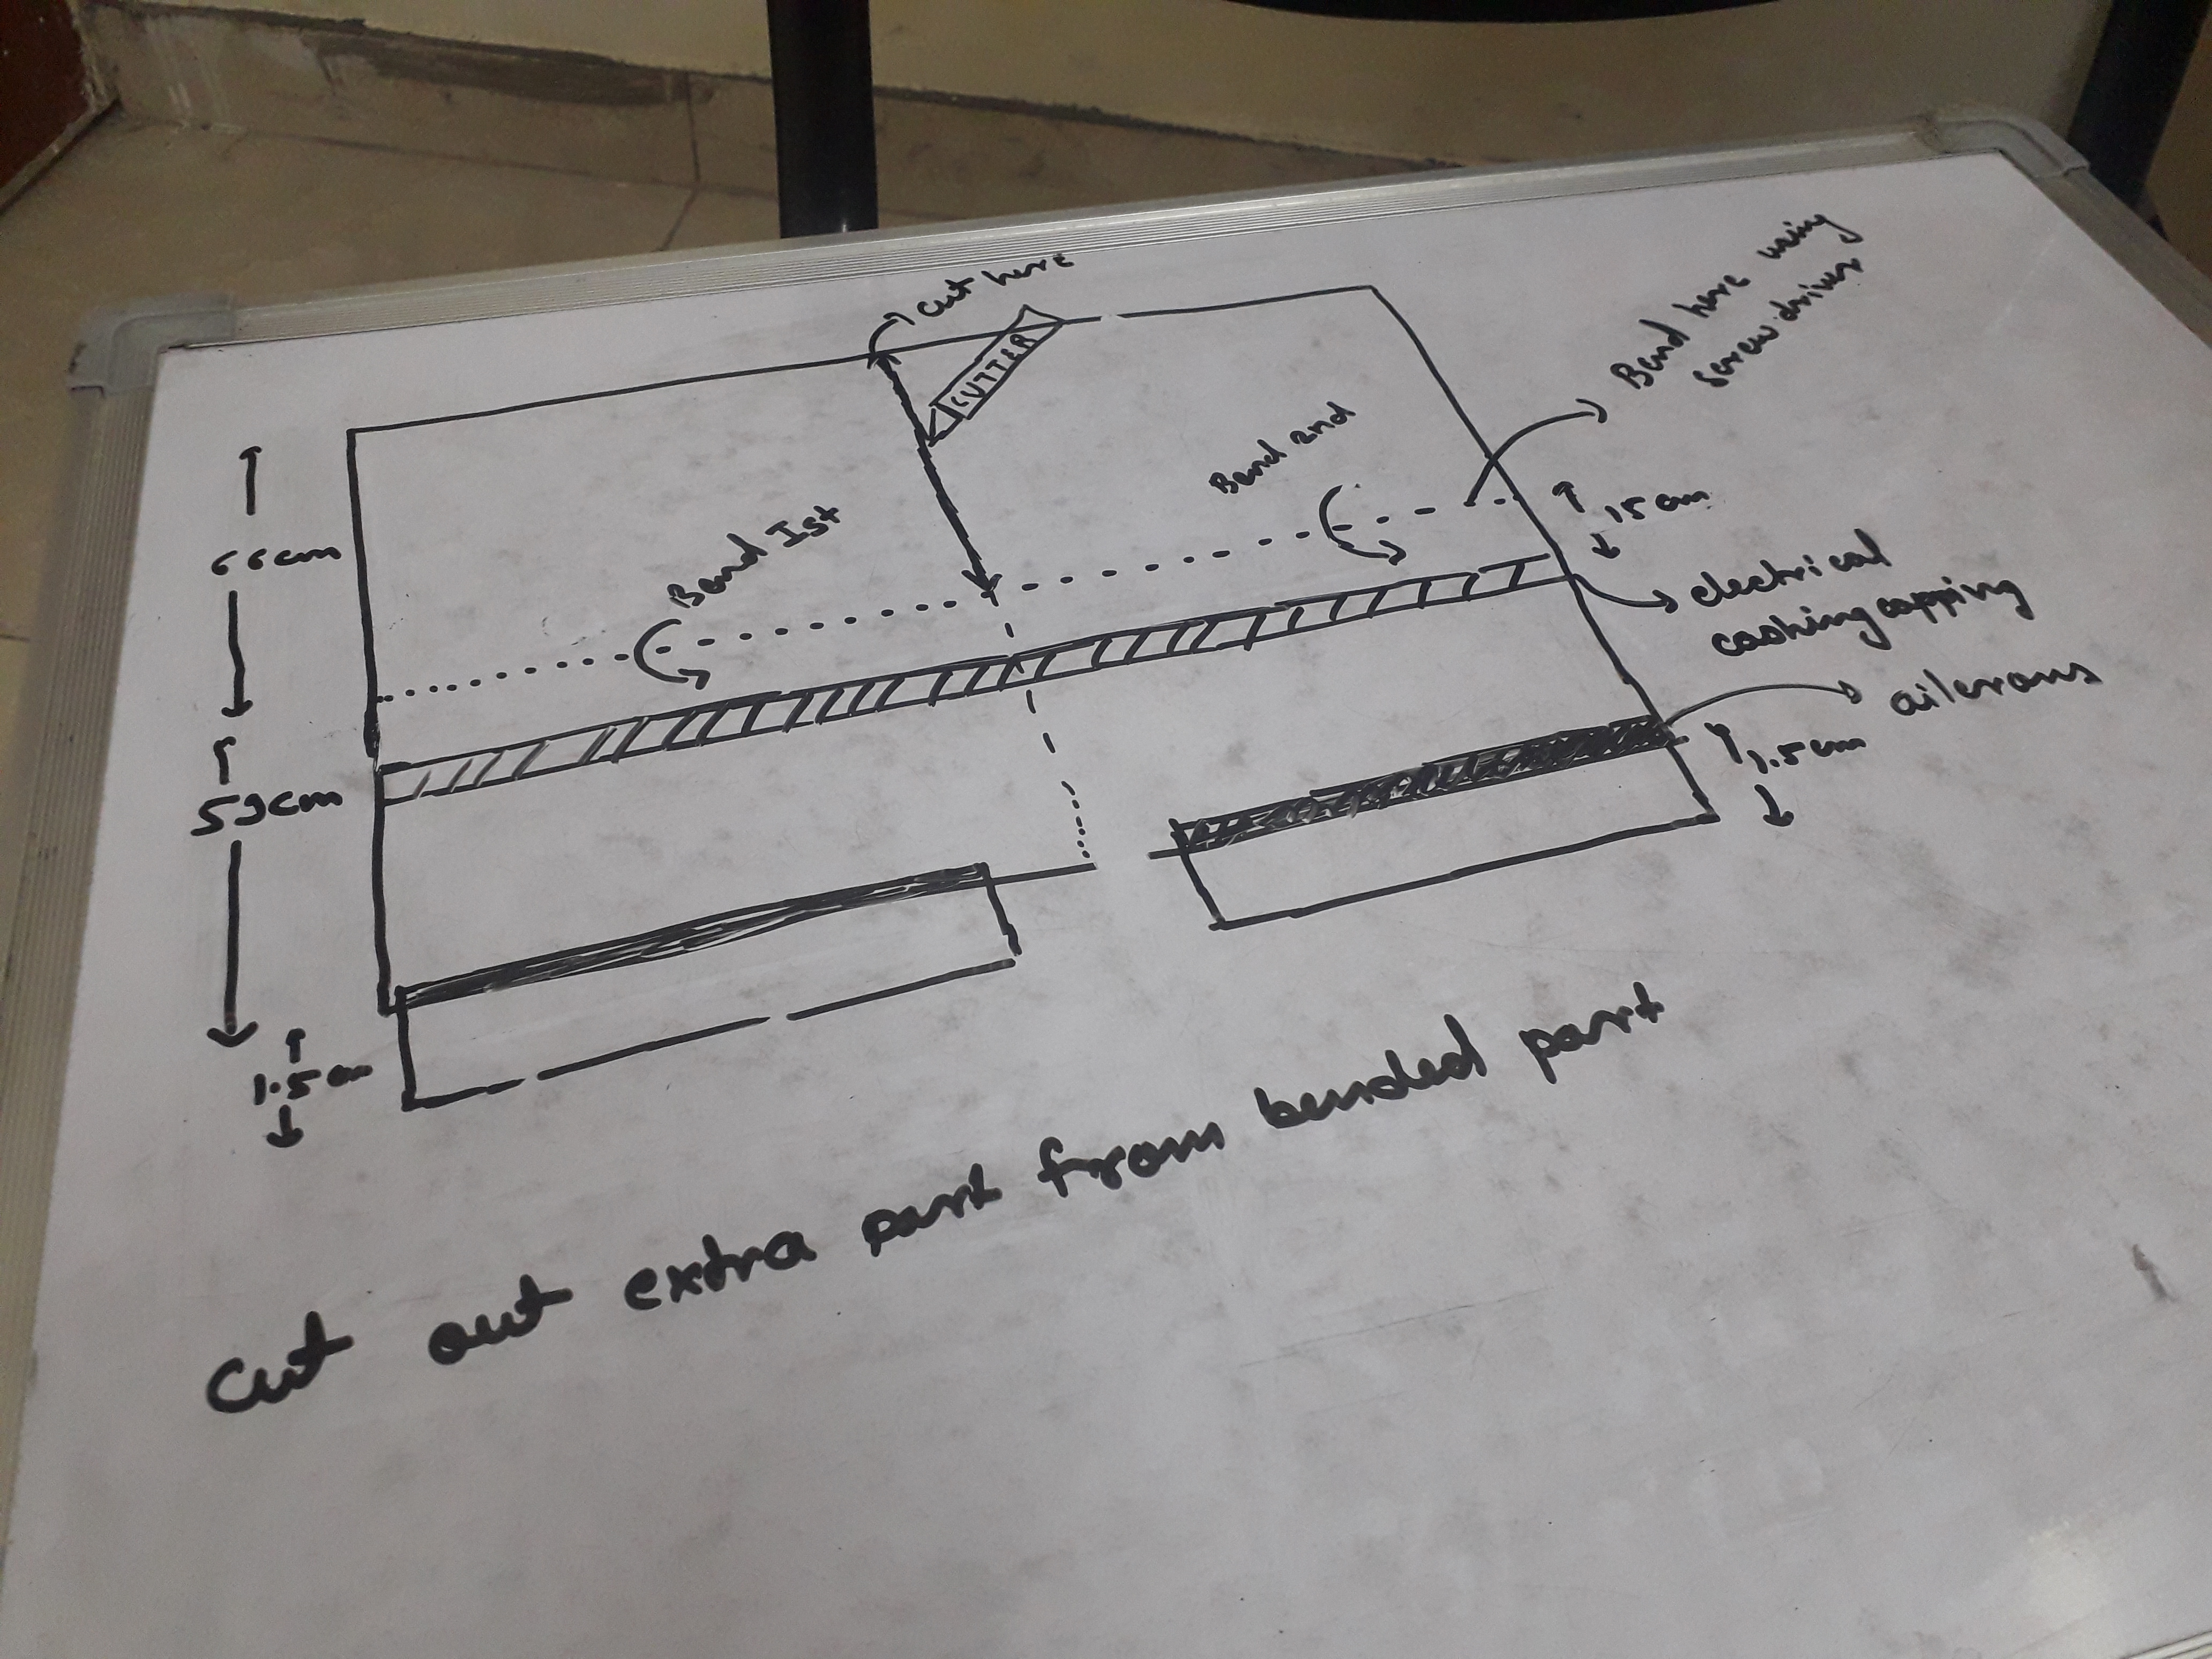 cut here
CUTTER
Bend here using
screw driver
Bend 2nd
Bend Ist
15 cm
66cm
electrical
cashing capping
ailerons
59cm
1.5 cm
1.5 cm
cut out extra part from bended part